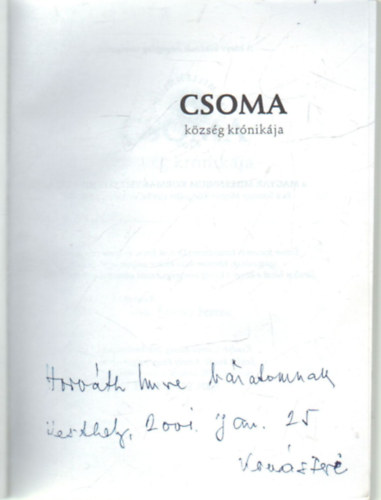 CSOMA
község krónikája
Horváth Imre barátomnak
Keszthely, 2001. Jan. 25